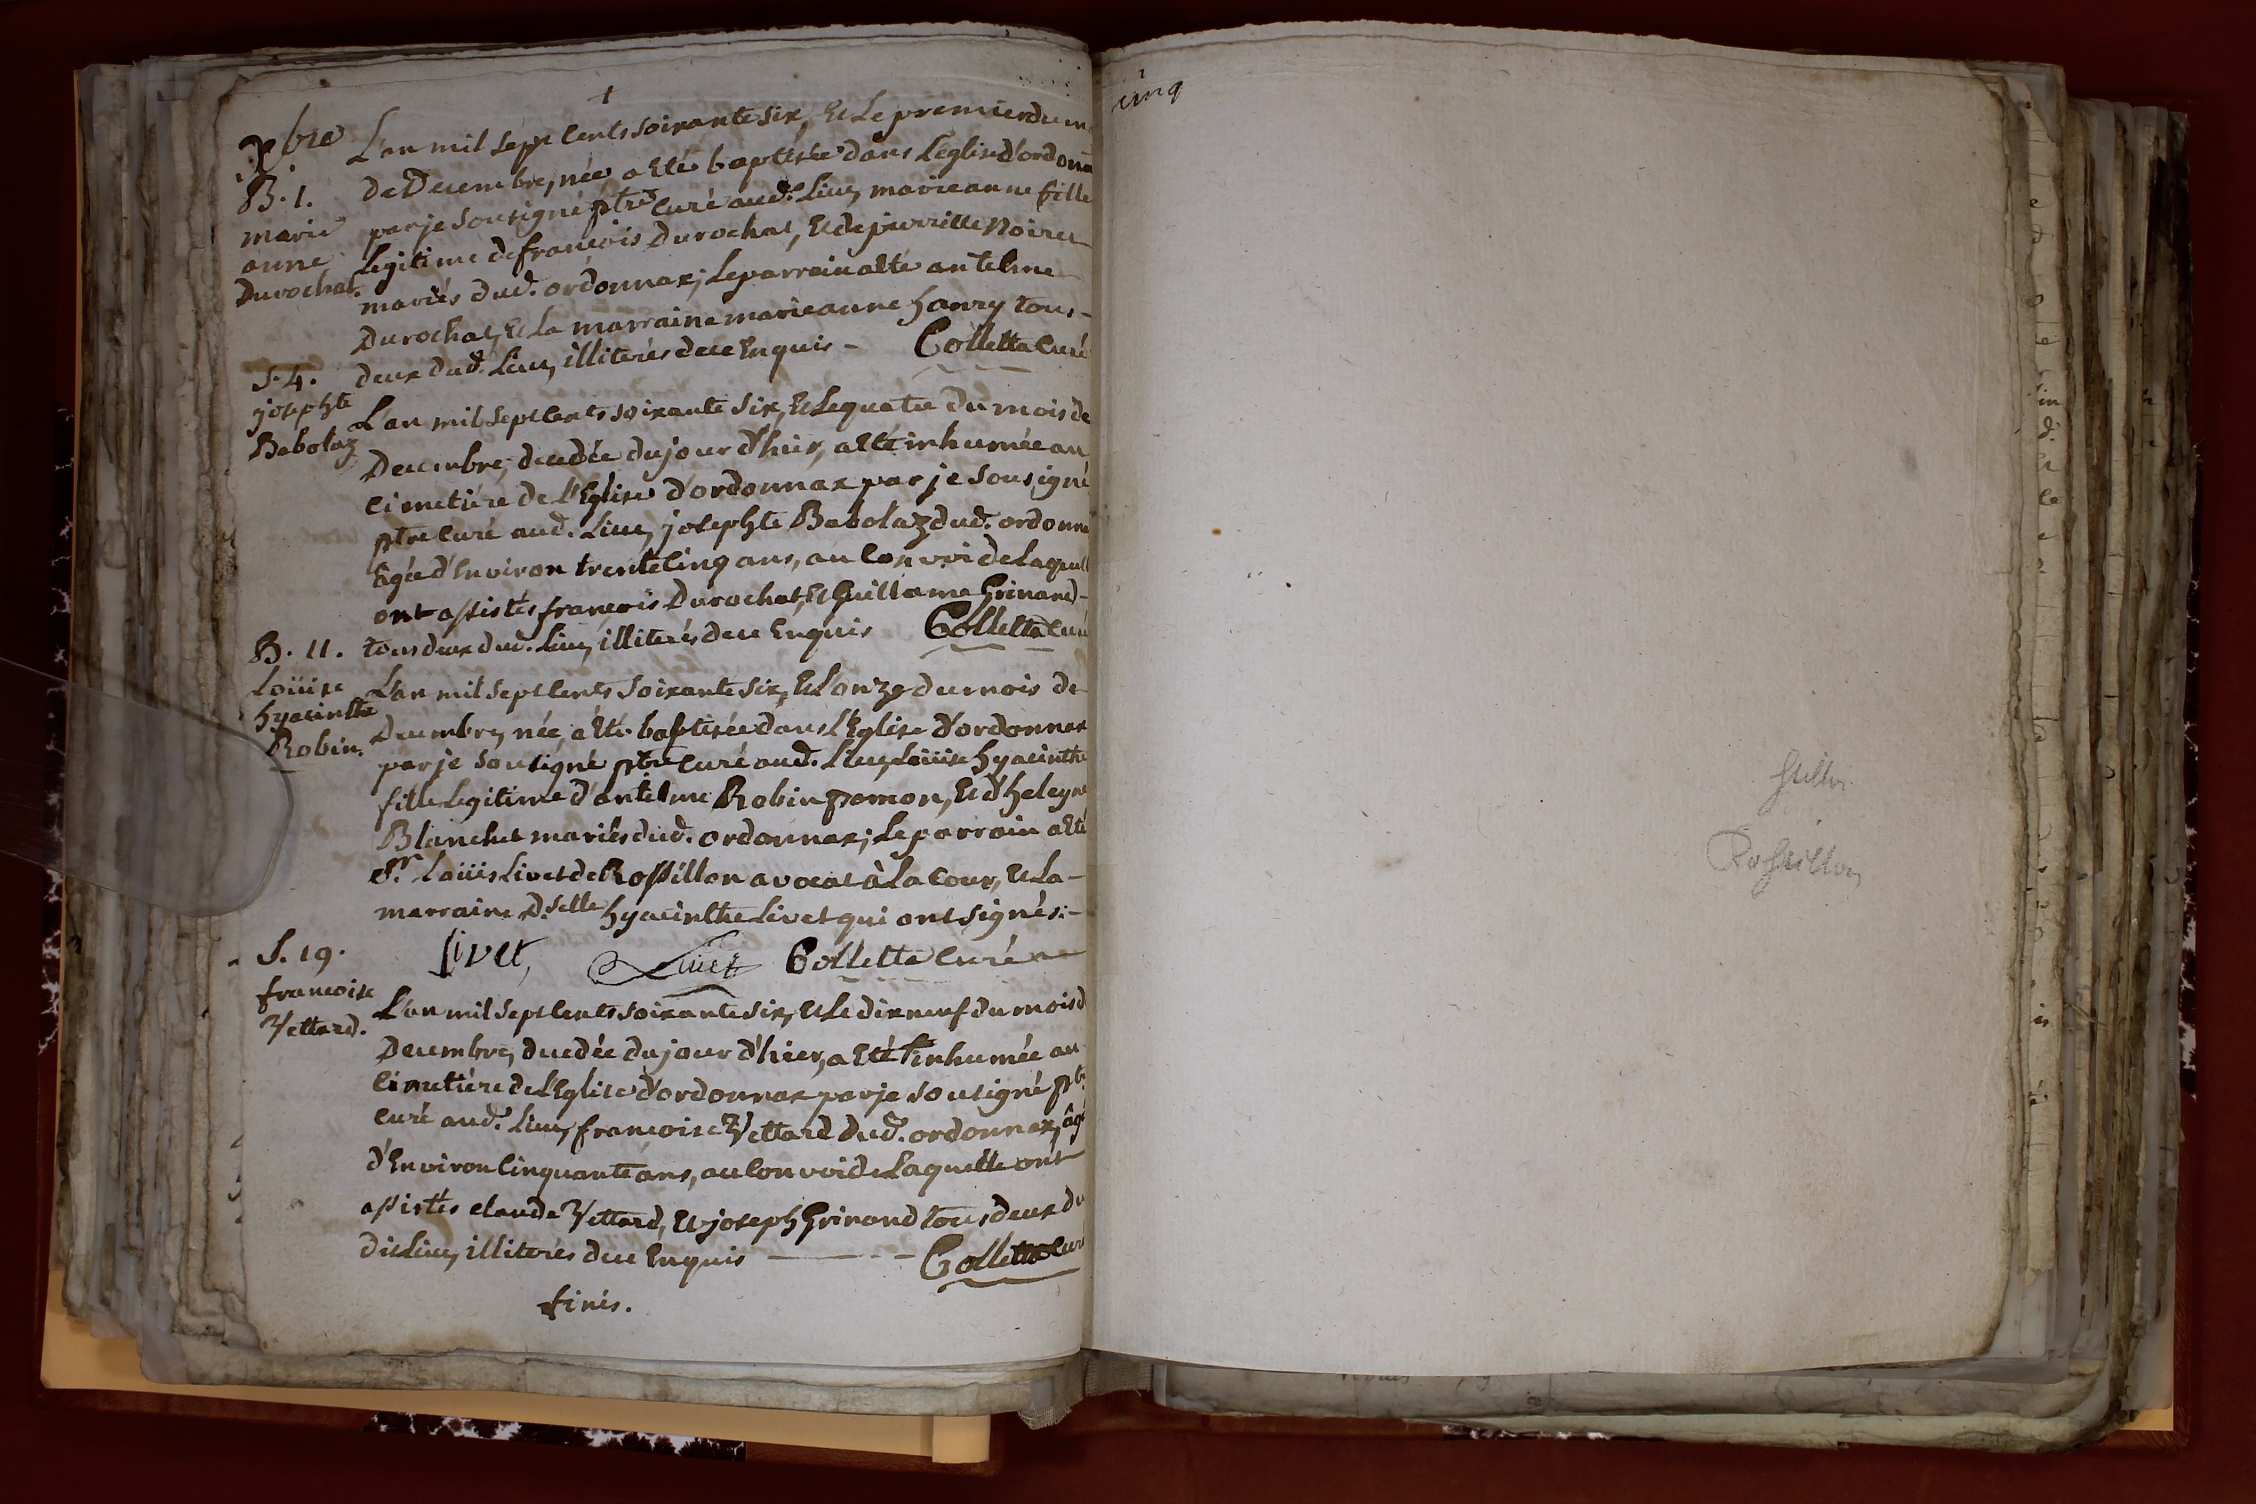 +
Xbre
B. 1.
marie
anne
Durochat.
L'an mil sept cents soixante six, et le premier du m
de Decembre, née a eté baptisée dans l'église d'ordonna
par je sousigné ptre curé aud. Lieu, marieanne fille
Legitime de françois Durochat, et de pierrille Noiret
mariés dud. ordonnax; Le parrain a été antelme
Durochat, et la marraine marieanne hanry tous-
deux dud. Lieu, illiterés de ce Enquis - Colletta Curé
S. 4.
josephte
Babolaz
L'an mil sept cents soixante six, et le quatre du mois de
Decembre, decedée du jour d'hier, a eté inhumée au
cimetiére de l'Eglise d'ordonnax par je sousigné
ptre curé aud. Lieu, josephte Babolaz dud. ordonna
âgée d'Environ trente cinq ans, au convoi de Laquell
ont assistés françois Durochat, et Guillame Grinand-
tous deux dud. Lieu, illiterés de ce Enquis Colletta Curé
B. 11.
Loüise
hyacinthe
Robin.
L'an mil sept cents soixante six, et l'onze du mois de
Decembre, née, a eté baptisée dans l'Eglise d'ordonnax
par je sousigné ptre curé aud. Lieu, Loüise hyacinthe
fille Legitime d'antelme Robin pomon, et d'heleyne
Blanchet mariés dud. ordonnax; Le parrain a eté
Sr. Loüis Livet de Rossillon avocat à La Cour, et La-
marraine D.selle hyacinthe Livet qui ont signés:-
Livet, Livet Colletta Curé
S. 19.
francoise
Vettard.
L'an mil sept cents soixante six, et le dix neuf du mois d
Decembre, decedée du jour d'hier, a eté inhumée au
cimetiére de l'Eglise d'ordonnax par je sousigné ptr
curé aud. Lieu, francoise Vettard dud. ordonnax, âgé
d'Environ Cinquante ans, au convoi de Laquelle ont
assistés claude Vettard, et joseph Grinand tous deux du
dit Lieu, illiterés de ce Enquis - Colletta Curé
finis.
cinq
Rossillon